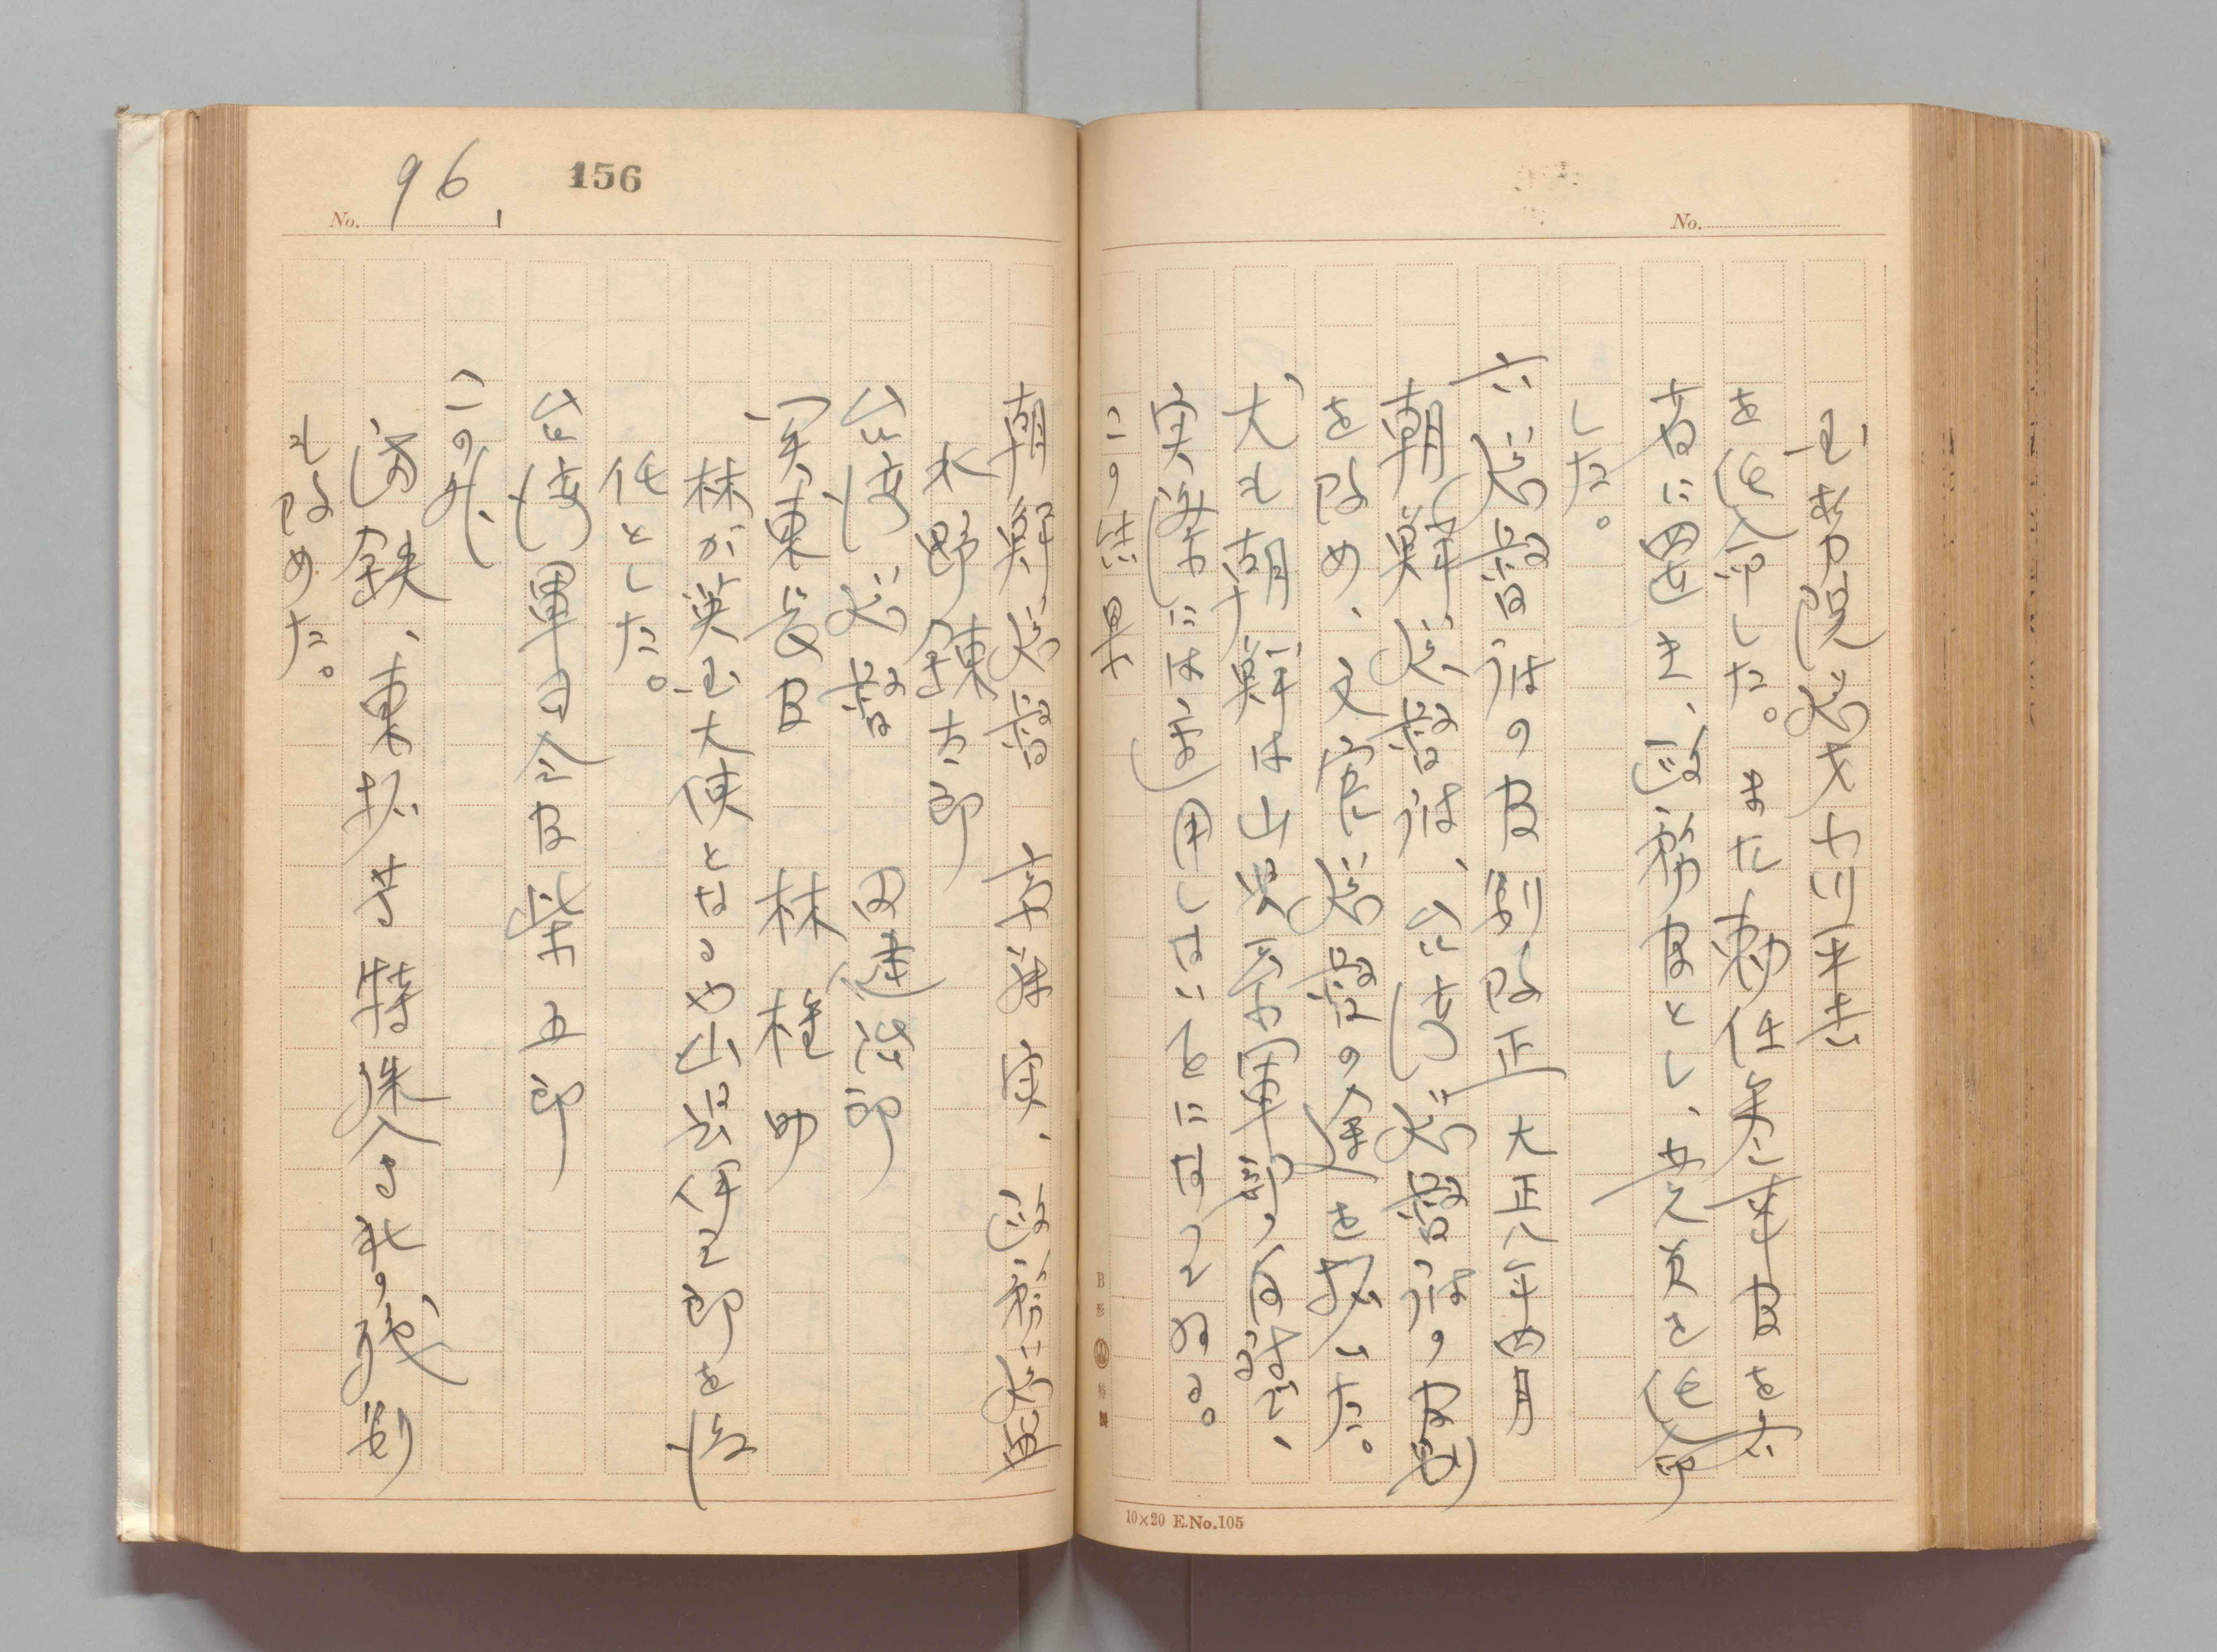 No.
国勢院総才小川平吉
を任命した。また勅任参事官を各
省に置き、政務官とし、党員を任命
した。
六 総督府の官制改正 大正八年四月
朝鮮総督府、台湾総督府の官制
を改め、文官総督の途を拓いた。
尤も朝鮮は山県
実際には適用しないことになつてゐる。
この結果
B形 特製
10×20 E.No.105
156
No. 96
朝鮮総督 斎藤実、政務総監
水野錬太郎
台湾総督 田健治郎
関東長官 林権助
林が英国大使となるや山県伊三郎を後
任とした。
台湾軍司令官柴五郎
この外、
満鉄、東拓等特殊会社の役割
も改めた。